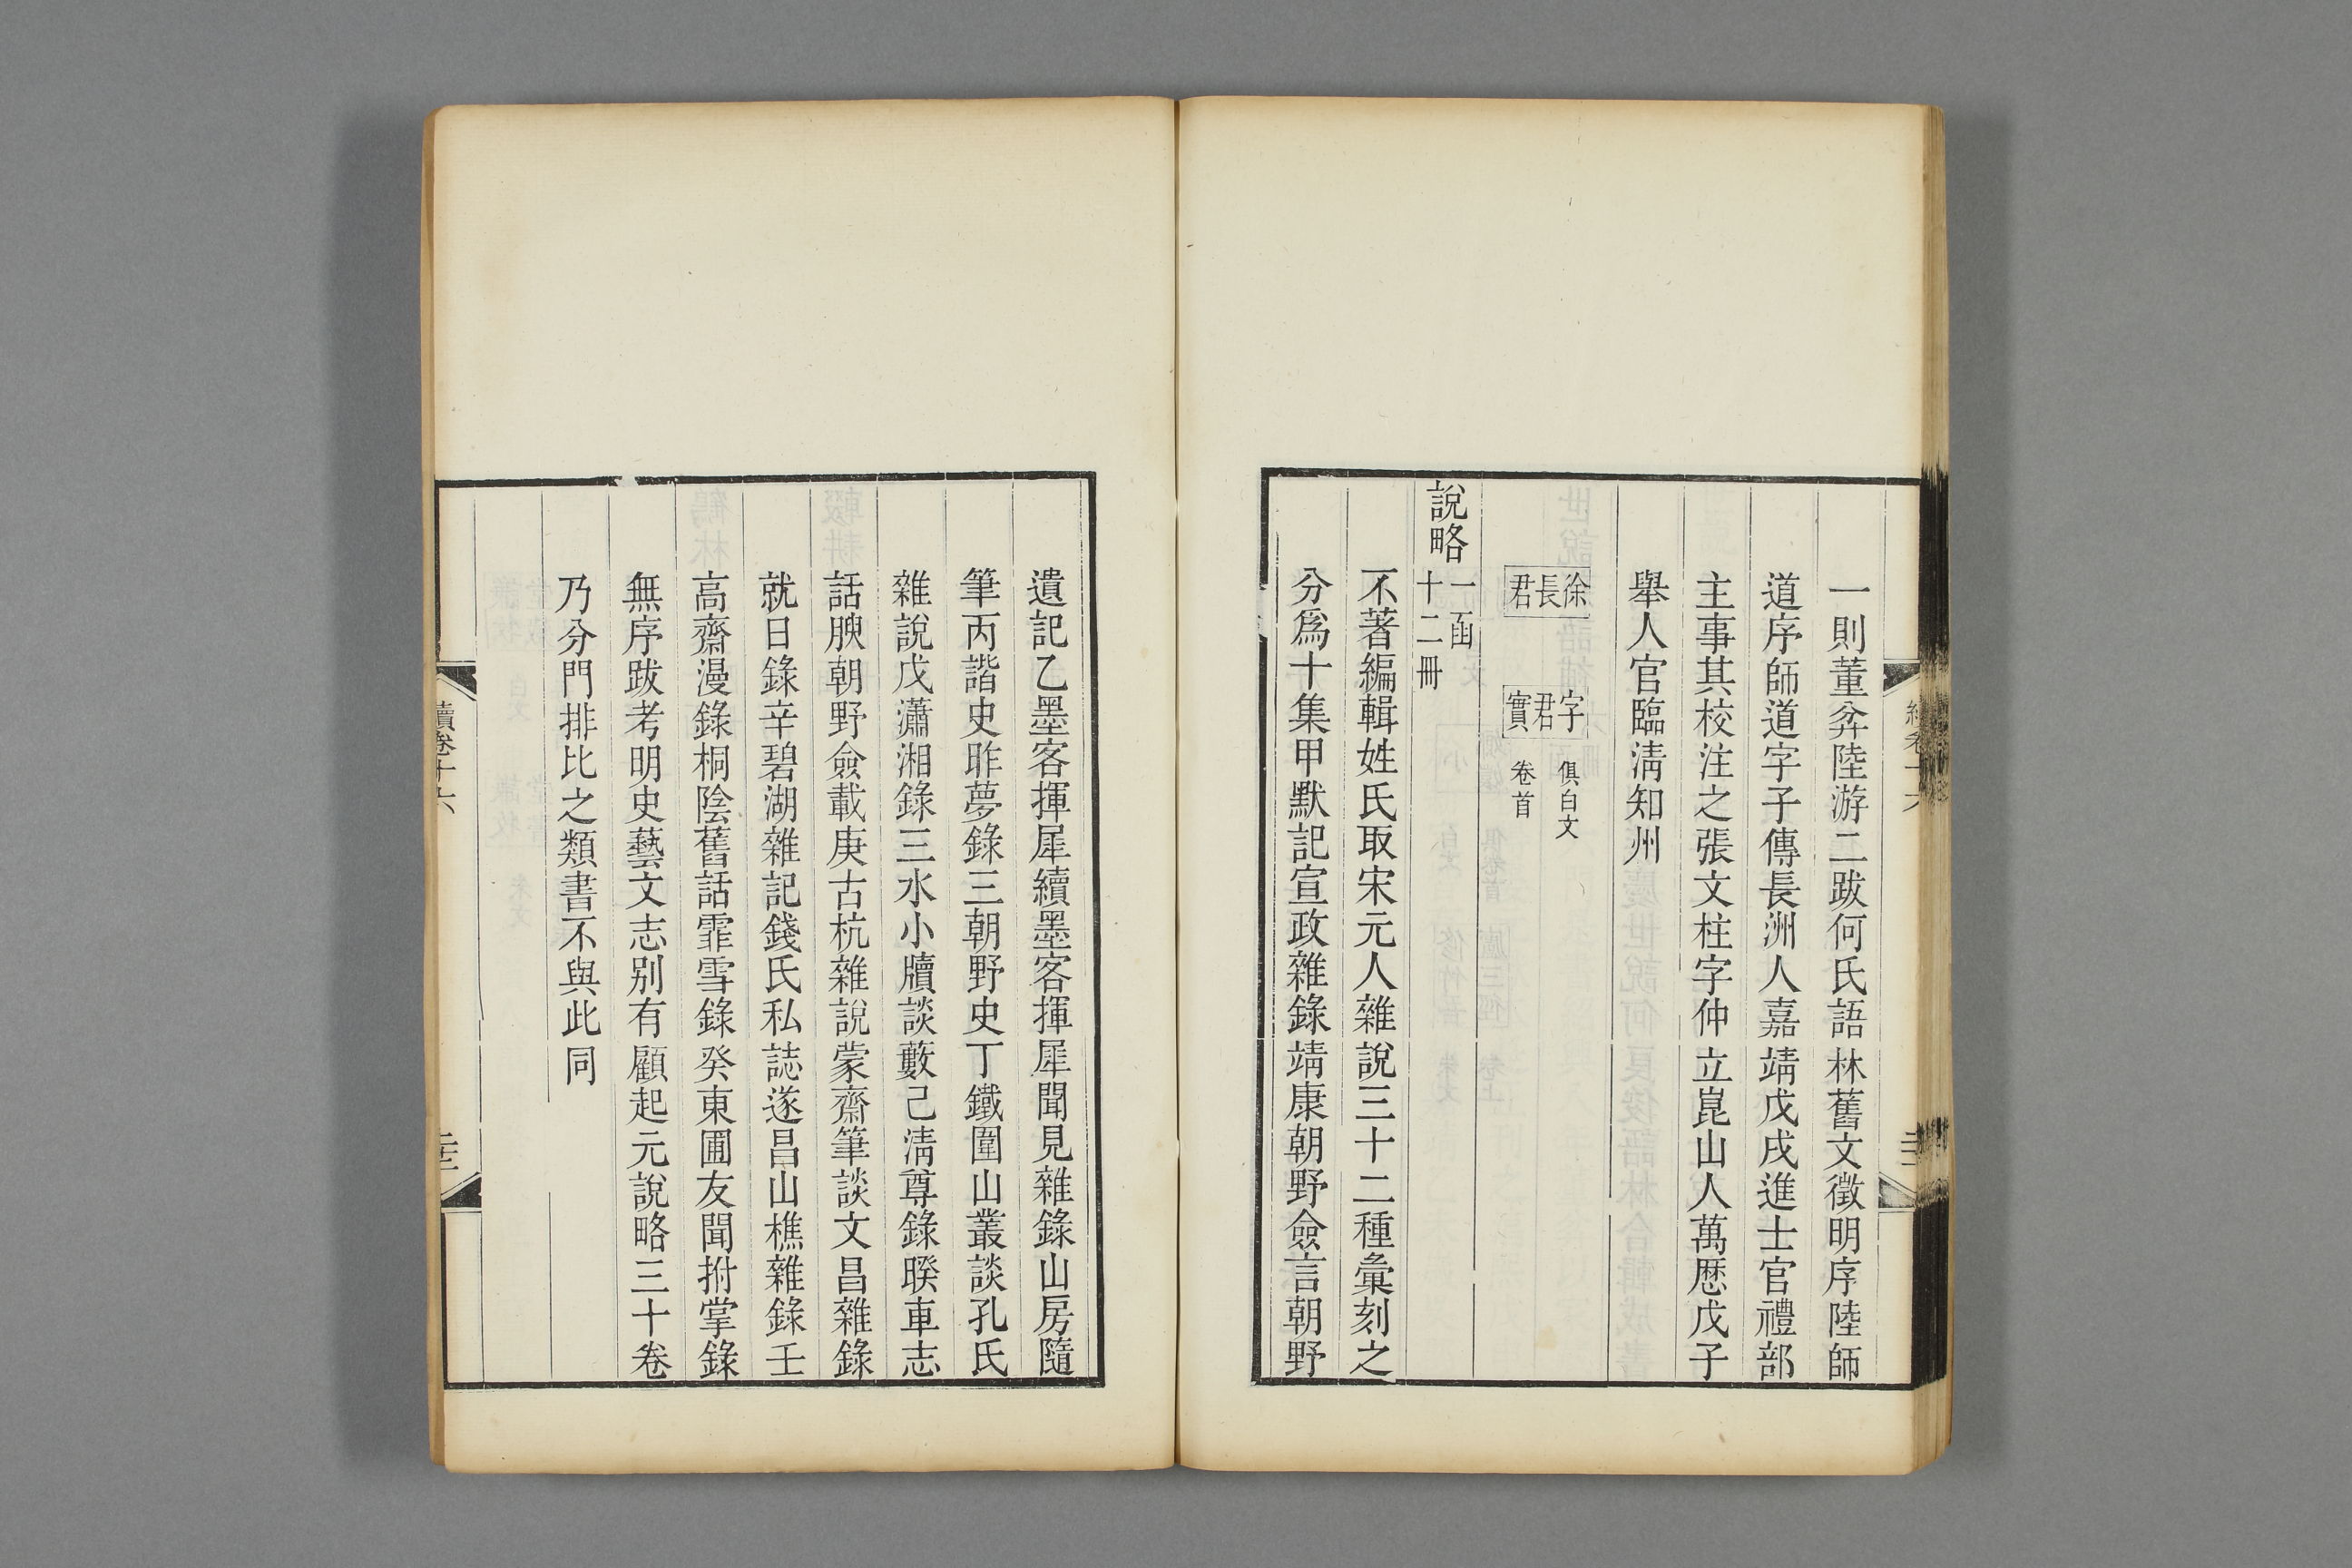 一則董弅陸游二跋何氏語林舊文徵明序陸師
道序師道字子傳長洲人嘉靖戊戌進士官禮部
主事其校注之張文柱字仲立崑山人萬歴戊子
舉人官臨淸知州
徐長君
字君實
俱白文
卷首
說略
一函
十二冊
不著編輯姓氏取宋元人雜說三十二種彙刻之
分爲十集甲默記宣政雜錄靖康朝野僉言朝野
遺記乙墨客揮犀續墨客揮犀聞見雜錄山房隨
筆丙諧史昨夢錄三朝野史丁鐵圍山叢談孔氏
雜說戊瀟湘錄三水小牘談藪己淸尊錄睽車志
話腴朝野僉載庚古杭雜說蒙齋筆談文昌雜錄
就日錄辛碧湖雜記錢氏私誌遂昌山樵雜錄壬
高齋漫錄桐陰舊話霏雪錄癸東圃友聞拊掌錄
無序跋考明史藝文志别有顧起元說略三十卷
乃分門排比之類書不與此同
續卷十六